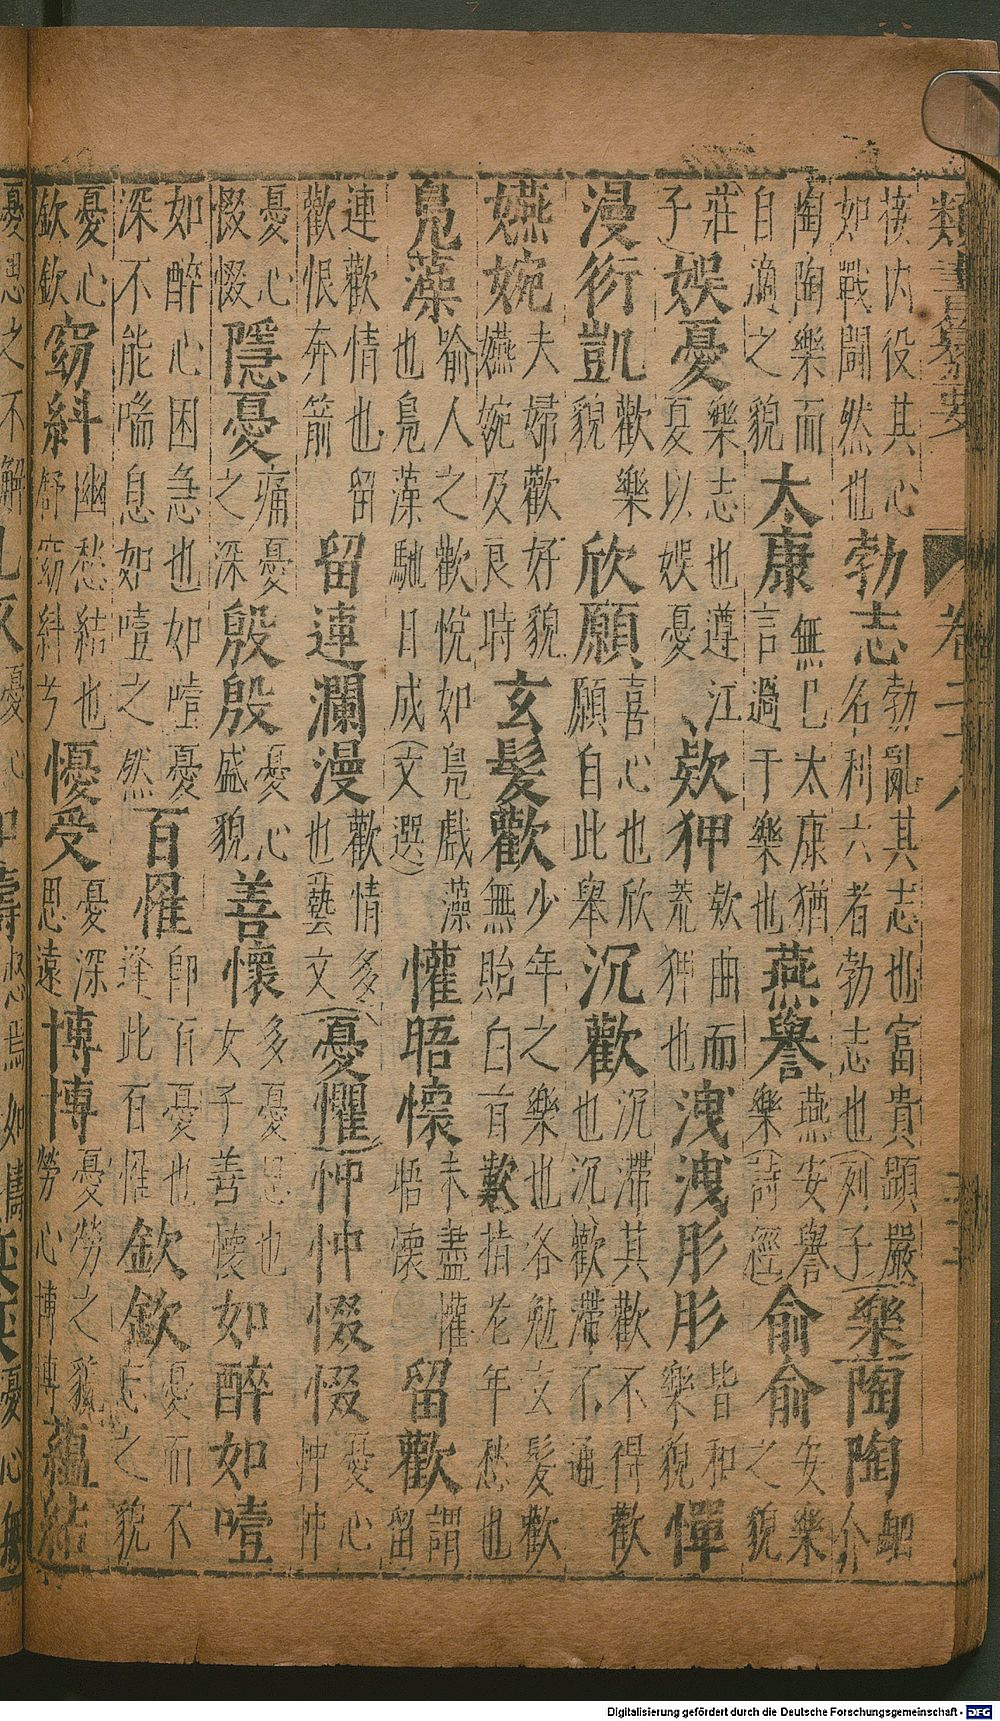 類書纂要
卷二十八
接內役其心
如戰鬪然也
勃志
勃亂其志也富貴顯嚴
名利六者勃志也(列子)
樂
陶陶
陶陶樂而
自適之貌
太康
無已太康猶
言過于樂也
燕譽
燕安譽
樂(詩經)
俞俞
安樂
之貌
莊
子)
娛憂
樂志也遵江
夏以娛憂
欵狎
欵曲而
荒狎也
洩洩肜肜
皆和
樂貌
憚
漫衍凱
歡樂
貌
欣願
喜心也欣
願自此舉
沉歡
沉滯其歡不得歡
也沉歡滯不通
嬿婉
夫婦歡好貌
嬿婉及良時
玄髮歡
少年之樂也各勉玄髮歡
無貽白首歎惜花年愁也
鳧藻
喻人之歡悅如鳧戲藻
也鳧藻馳日成(文選)
懽晤懷
未盡懽
晤懷
留歡
謂
留
連歡情也留
歡恨奔箭
留連瀾漫
歡情多
也(藝文
憂懼
忡忡惙惙
憂心
忡忡
憂心
惙惙
隱憂
痛憂
之深
殷殷
憂心
盛貌
善懷
多憂思也
女子善懷
如醉如噎
如醉心困急也如噎憂
深不能喘息如噎之然
百罹
卽百憂也
逢此百罹
欽欽
憂而不
忘之貌
憂心
欽欽
窈糾
幽愁結也
舒窈糾兮
懮受
憂深
思遠
博博
憂勞之貌
勞心博博
蘊結
Digitalisierung gefördert durch die Deutsche Forschungsgemeinschaft - DFG